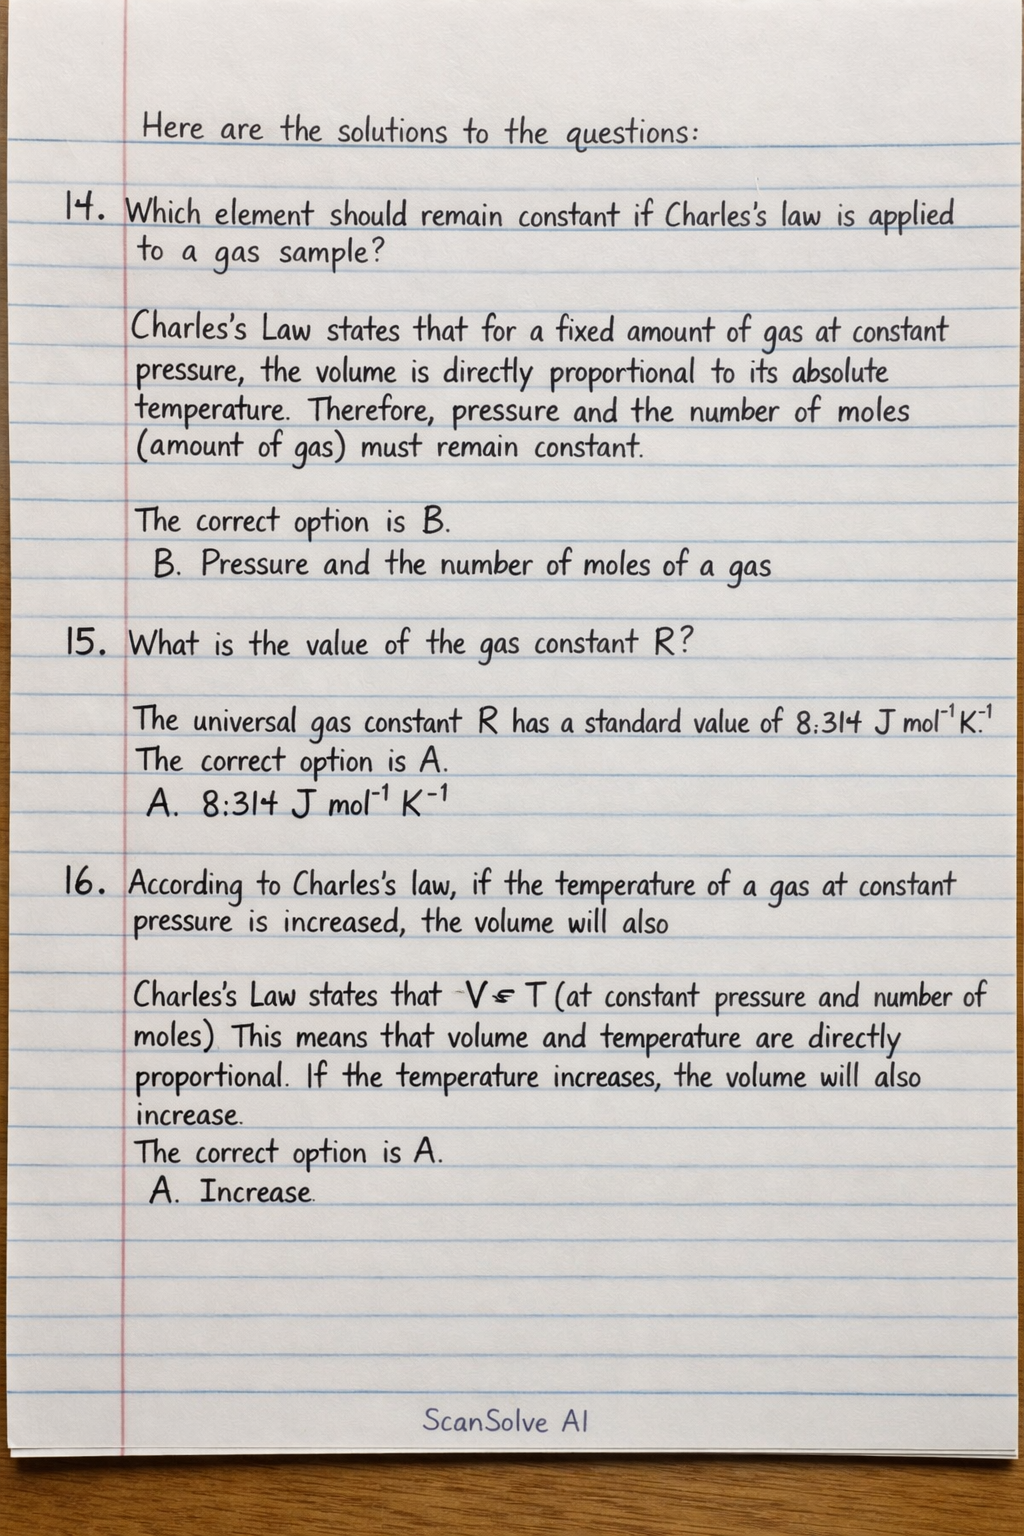 Here are the solutions to the questions:
14. Which element should remain constant if Charles's law is applied
to a gas sample?
Charles's Law states that for a fixed amount of gas at constant
pressure, the volume is directly proportional to its absolute
temperature. Therefore, pressure and the number of moles
(amount of gas) must remain constant.
The correct option is B.
B. Pressure and the number of moles of a gas
15. What is the value of the gas constant R?
The universal gas constant R has a standard value of 8:314 J mol⁻¹ K⁻¹.
The correct option is A.
A. 8:314 J mol⁻¹ K⁻¹
16. According to Charles's law, if the temperature of a gas at constant
pressure is increased, the volume will also
Charles's Law states that V T (at constant pressure and number of
moles) This means that volume and temperature are directly
proportional. If the temperature increases, the volume will also
increase.
The correct option is A.
A. Increase.
ScanSolve AI